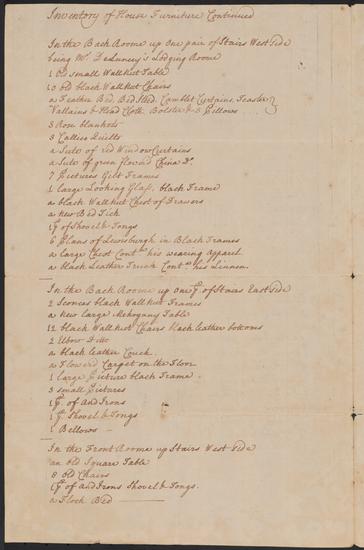 Inventory of House Furniture Continued
In the Back Roome up One pair of Stairs West Side
being Mr. DeLancey's Lodging Roome
1 Old small Wallnut Table
10 old black Wallnut Chairs
a Feather Bed, Bed Sted, Camblet Curtains, Teaster
Vallains & Head Cloth. Bolster & 3 Pillows
3 Rose blankets
3 Callico Quilts
a Sute of red Window Curtains
a Sute of green flower'd China Do.
7 Pictures Gilt Frames
1 large Looking Glass, black Frame
a black Wallnut Chest of Drawers
a new Bed Tick
1 pr. of Shovel & Tongs
6 Plans of Lewisburgh in Black Frames
a large Chest Contg. his wearing Apparel
a black Leather Trunk Contg. his Linnen.
In the Back Roome up one pr. of Stairs East Side
2 Sconces black Wallnut Frames
a new large Mehogany Table
12 black Wallnut Chairs black leather bottoms
2 Elbow Ditto
a black leather Couch
a Flower'd Carpet on the Floor
1 large Picture black Frame
3 small Pictures
1 pr. of And Irons
1 pr. Shovel & Tongs
1 Bellows
In the Front Roome up Stairs West Side
an Old Square Table
8 old Chairs
1 pr. of And Irons Shovel & Tongs.
a Flock Bed